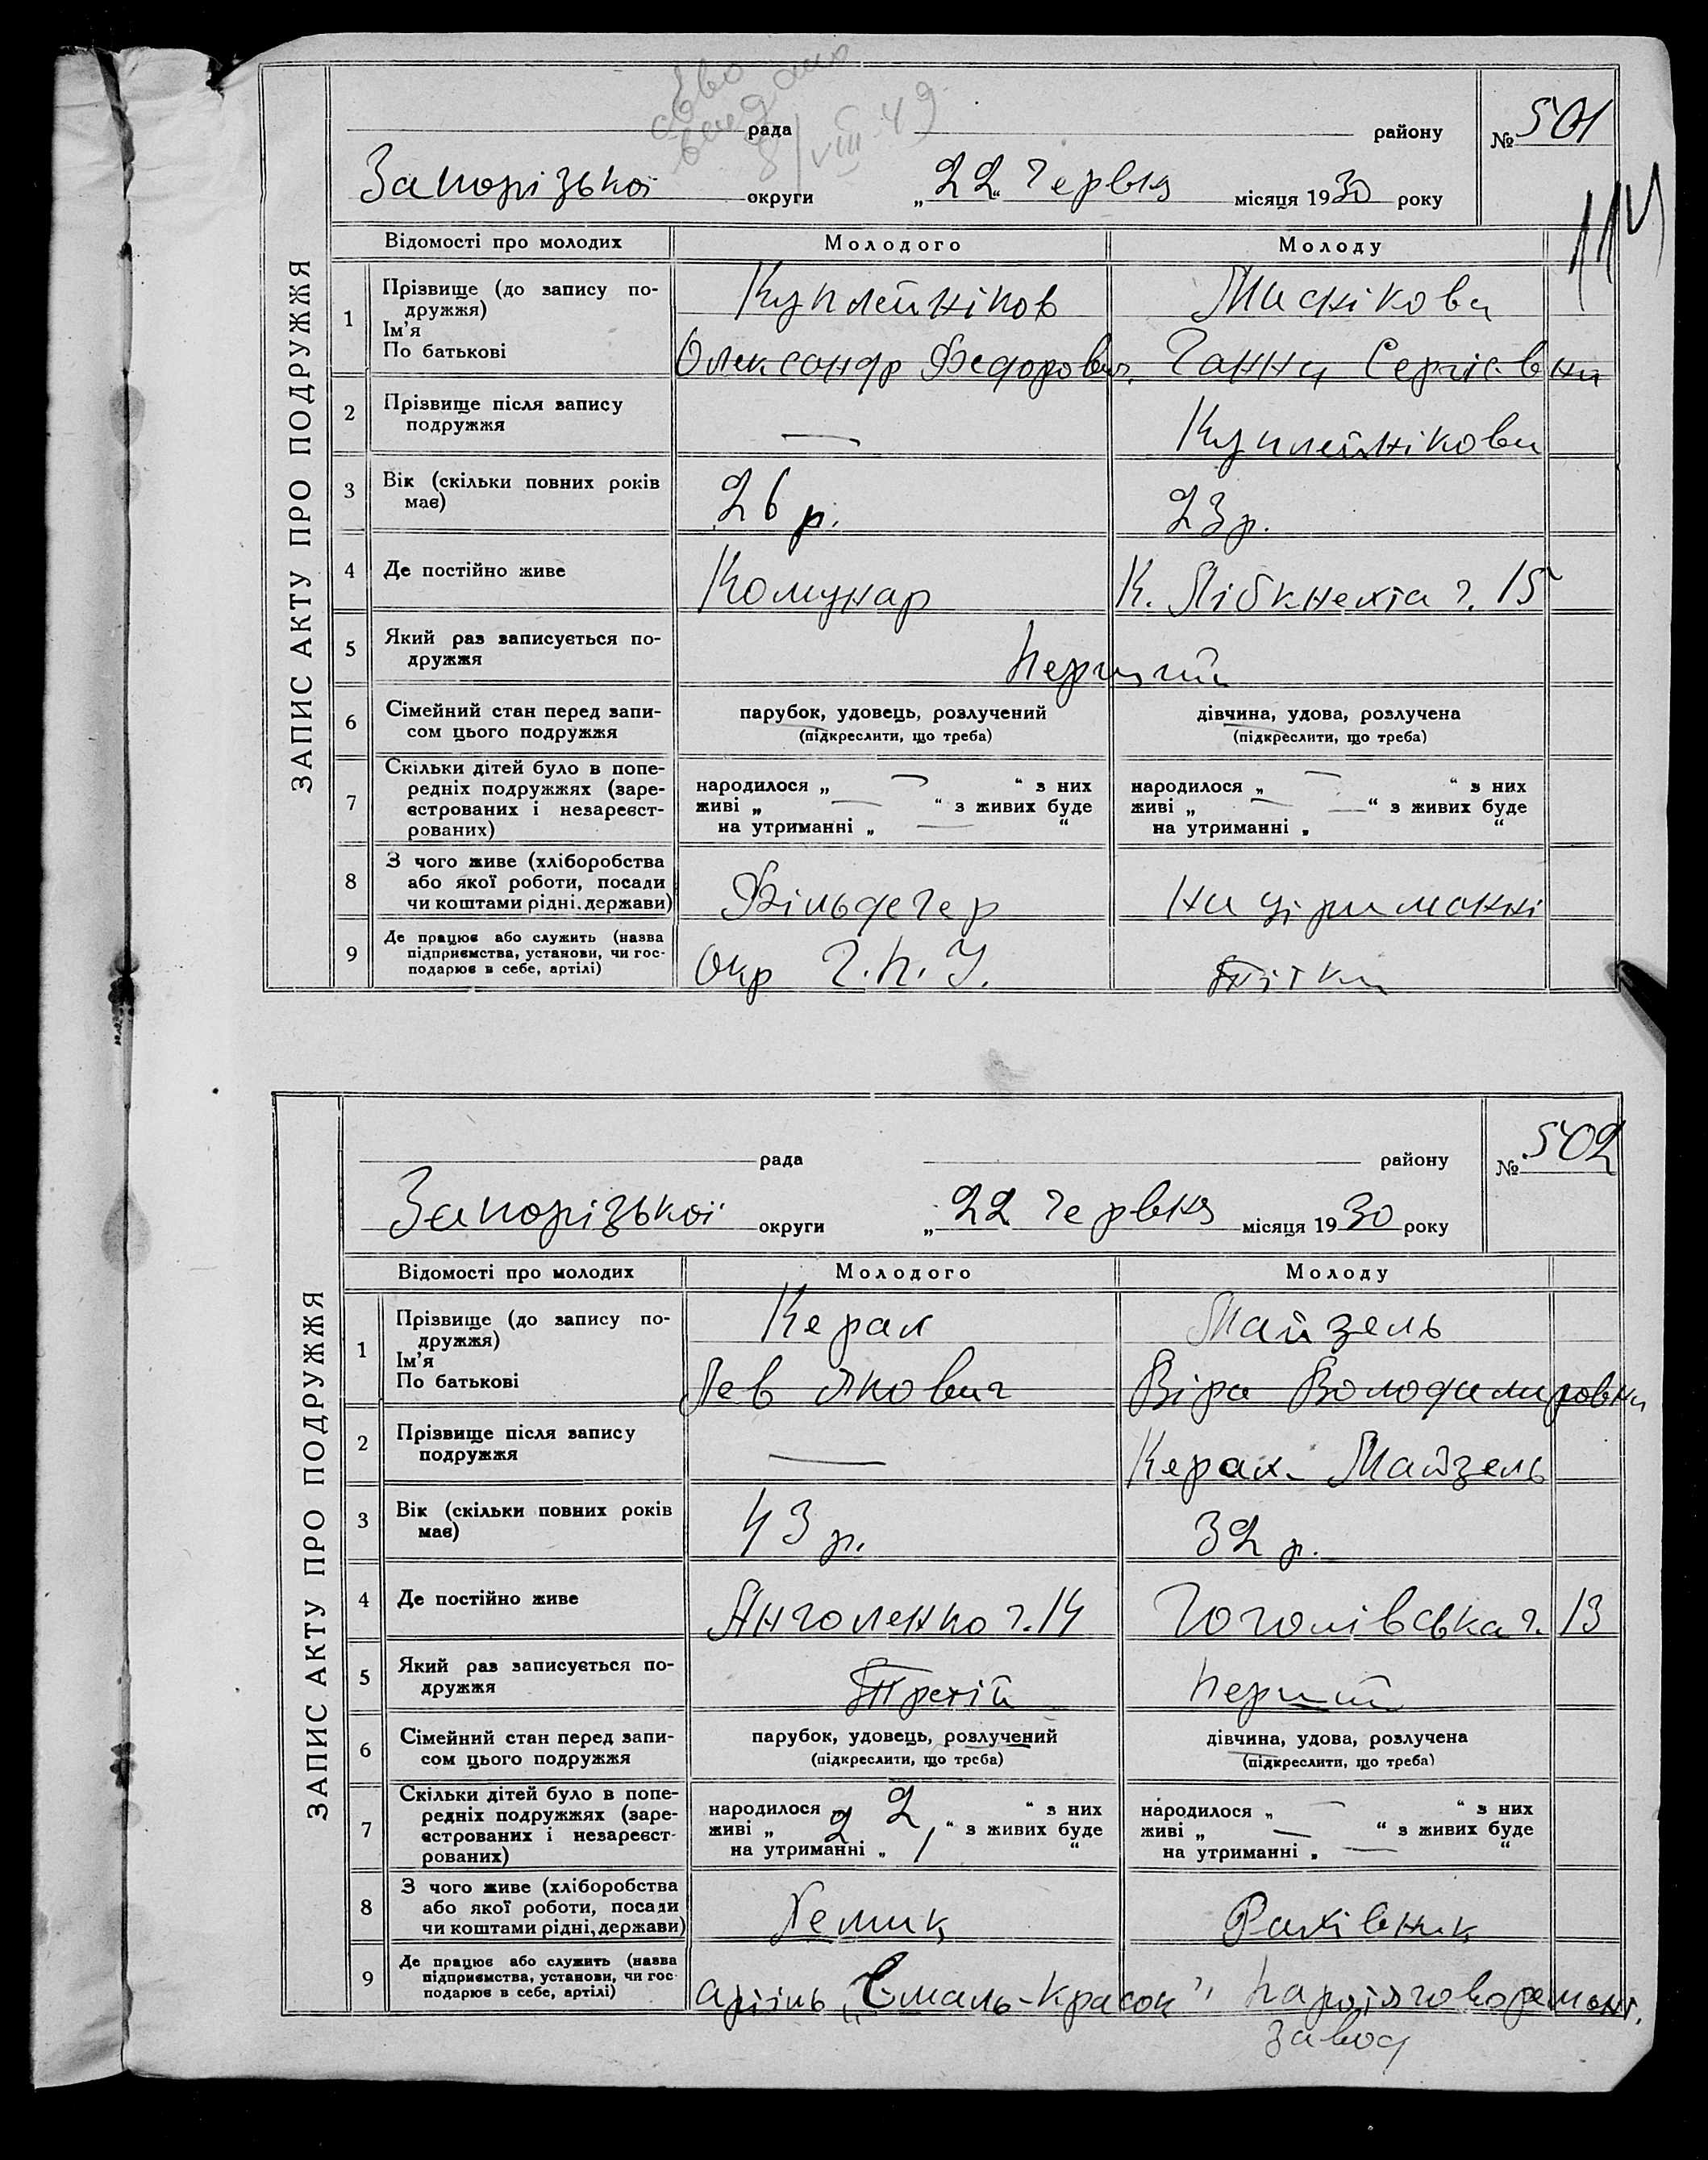 Св-во
видано
8/VIII-49
рада району
№ 501
Запорізької округи „22“ червня місяця 1930 року
ЗАПИС АКТУ ПРО ПОДРУЖЖЯ
Відомості про молодих Молодого Молоду
1 Прізвище (до запису по-
дружжя)
Ім'я
По батькові
Куплейніков Миснікова
Олександр Федорович Ганна Сергієвна
2 Прізвище після запису
подружжя
— Куплейнікова
3 Вік (скільки повних років
має)
26 р. 23 р.
4 Де постійно живе Комунар К. Лібкнехта ч. 15
5 Який раз записується по-
дружжя
Перший
6 Сімейний стан перед запи-
сом цього подружжя
парубок, удовець, розлучений дівчина, удова, розлучена
(підкреслити, що треба) (підкреслити, що треба)
7 Скільки дітей було в попе-
редніх подружжях (заре-
єстрованих і незареєст-
рованих)
народилося „ — “ з них народилося „ — “ з них
живі „ — “ з живих буде живі „ — “ з живих буде
на утриманні „ — “ на утриманні „ “
8 З чого живе (хліборобства
або якої роботи, посади
чи коштами рідні, держави)
Фільдегер на утриманні
9 Де працює або служить (назва
підприємства, установи, чи гос-
подарює в себе, артілі)
Окр Г.П.У. тітки
рада району
№ 502
Запорізької округи „22 червня місяця 1930 року
ЗАПИС АКТУ ПРО ПОДРУЖЖЯ
Відомості про молодих Молодого Молоду
1 Прізвище (до запису по-
дружжя)
Ім'я
По батькові
Керал Майзель
Лев Якович Віра Володимировна
2 Прізвище після запису
подружжя
— Керал-Майзель
3 Вік (скільки повних років
має)
43 р. 32 р.
4 Де постійно живе Анголенко ч. 14 Гоголівська ч. 13
5 Який раз записується по-
дружжя
Третій Перший
6 Сімейний стан перед запи-
сом цього подружжя
парубок, удовець, розлучений дівчина, удова, розлучена
(підкреслити, що треба) (підкреслити, що треба)
7 Скільки дітей було в попе-
редніх подружжях (заре-
єстрованих і незареєст-
рованих)
народилося „ 2 “ з них народилося „ — “ з них
живі „ 2 “ з живих буде живі „ — “ з живих буде
на утриманні „ 1 “ на утриманні „ — “
8 З чого живе (хліборобства
або якої роботи, посади
чи коштами рідні, держави)
Хемик Рахівник
9 Де працює або служить (назва
підприємства, установи, чи гос-
подарює в себе, артілі)
артіль „Емаль-красок“ Паротяговоремонт.
завод